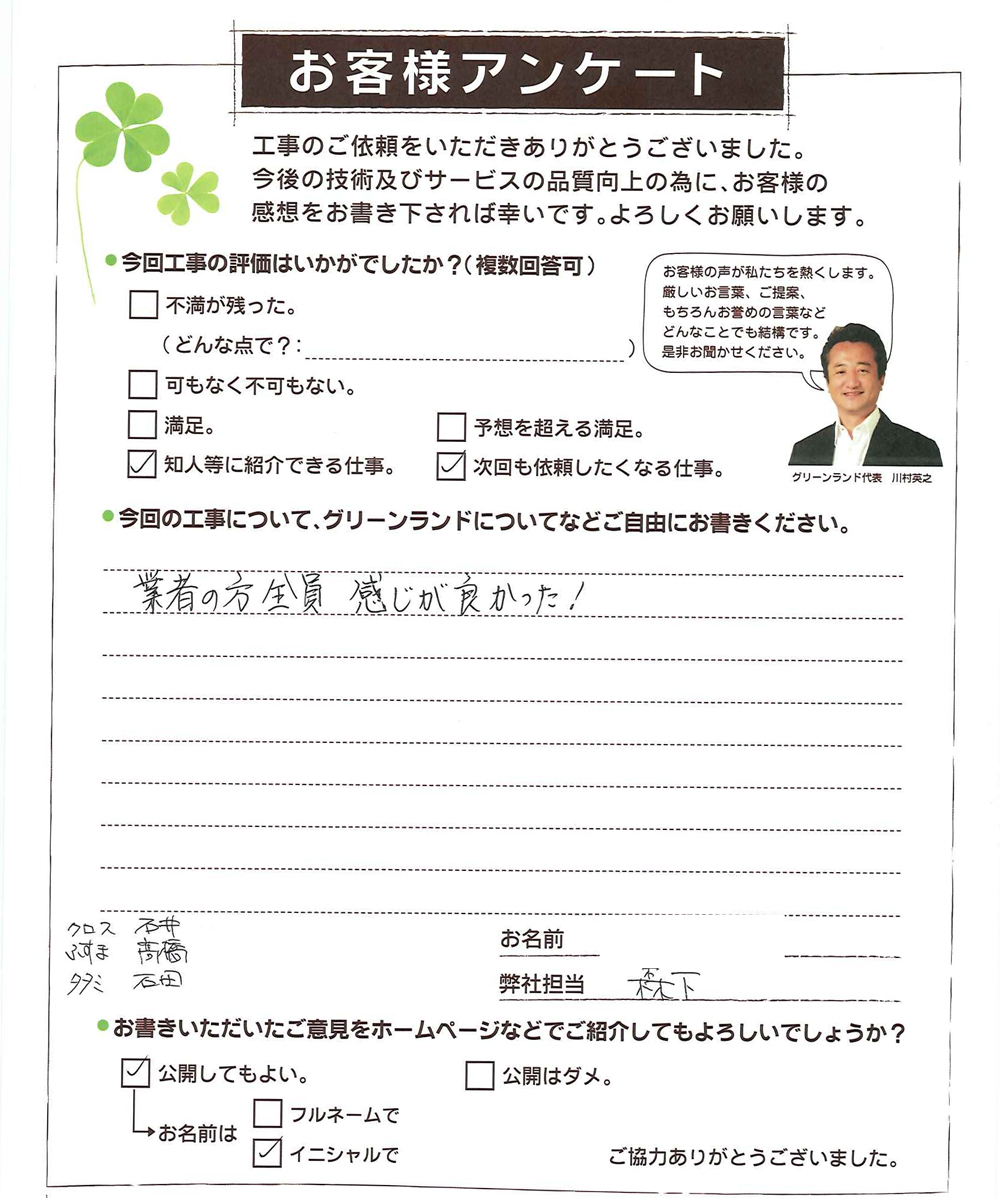 お客様アンケート
工事のご依頼をいただきありがとうございました。
今後の技術及びサービスの品質向上の為に、お客様の
感想をお書き下されば幸いです。よろしくお願いします。
●今回工事の評価はいかがでしたか?(複数回答可)
不満が残った。
(どんな点で?: )
可もなく不可もない。
満足。
予想を超える満足。
知人等に紹介できる仕事。
次回も依頼したくなる仕事。
お客様の声が私たちを熱くします。
厳しいお言葉、ご提案、
もちろんお誉めの言葉など
どんなことでも結構です。
是非お聞かせください。
グリーンランド代表 川村英之
●今回の工事について、グリーンランドについてなどご自由にお書きください。
業者の方全員 感じが良かった!
クロス 石井
ふすま 高橋
タタミ 石田
お名前
弊社担当 森下
●お書きいただいたご意見をホームページなどでご紹介してもよろしいでしょうか?
公開してもよい。
公開はダメ。
お名前は
フルネームで
イニシャルで
ご協力ありがとうございました。